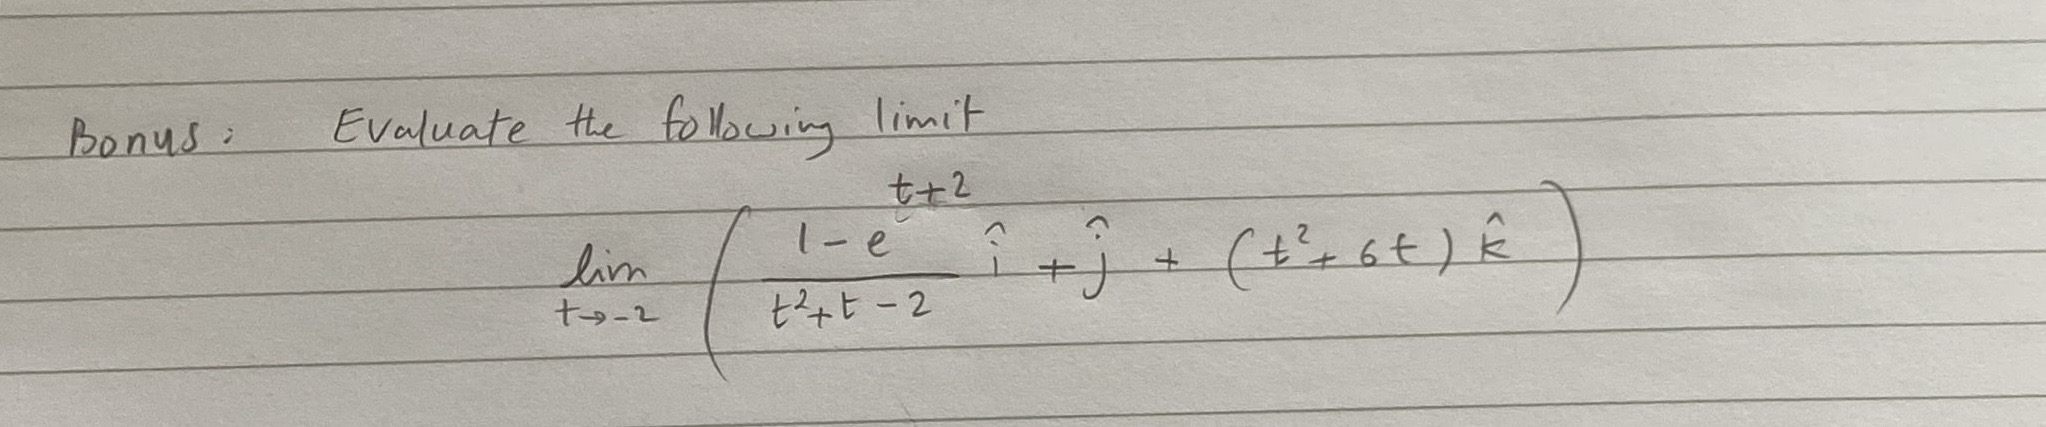 Bonus: Evaluate the following limit
lim t→-2 ( (1-e^(t+2))/(t²+t-2) î + ĵ + (t²+6t) k̂ )